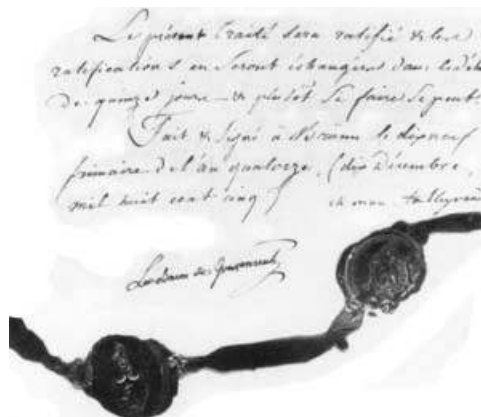 Le présent Traité sera ratifié & les
ratifications en seront échangées dans le dél
de quinze jours & plutôt si faire se peut
Fait & signé à Brünn le dix neuf
frimaire de l'an quatorze, (dix Décembre,
mil huit cent cinq)
ch mau talleyran
Le Baron de Gravenreuth